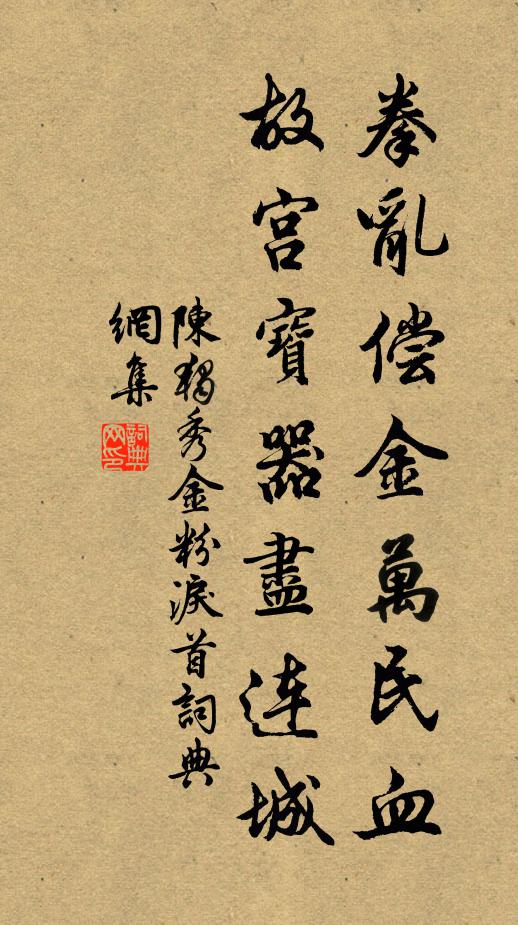 拳亂偿金萬民血
故宮寶器盡连城
陳獨秀金粉淚首詞典
網集
詞典
网印